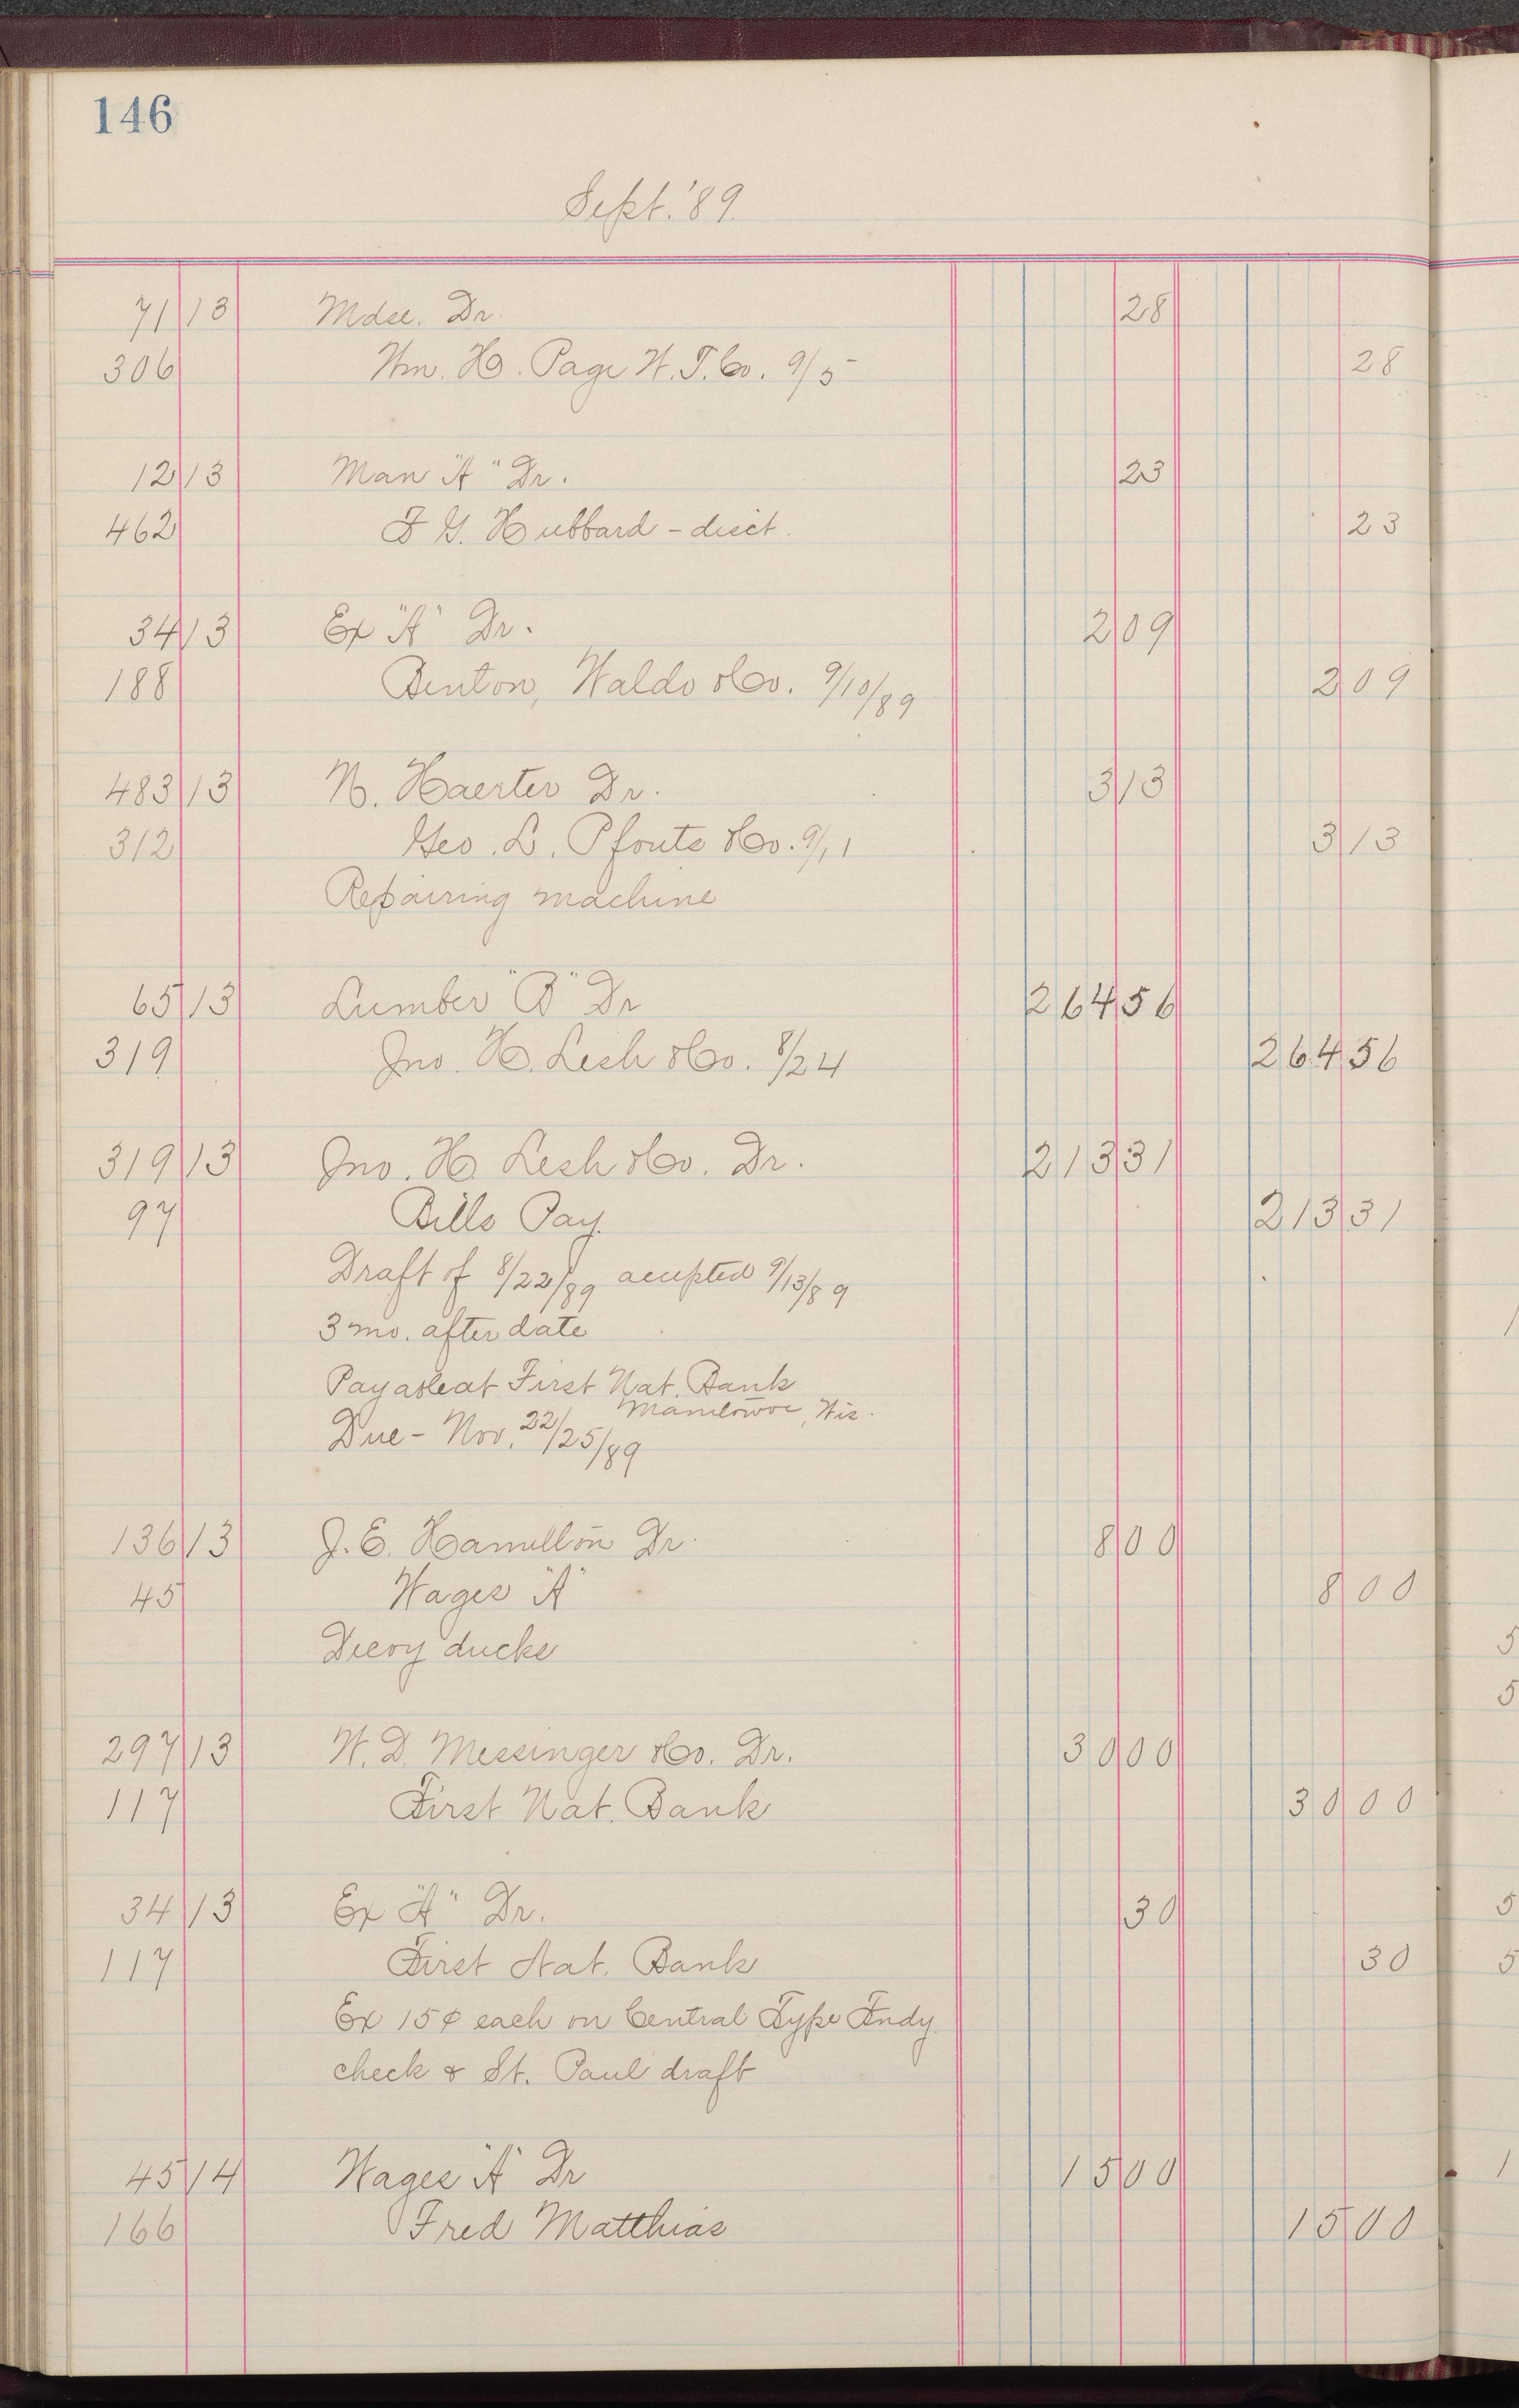 146
Sept. '89.
71 13 Mdse. Dr. 28
306 Wm. H. Page W. T. Co. 9/5 28
12 13 Man "A" Dr. 23
462 F G. Hubbard - disct. 23
34 13 Ex "A" Dr. 2 09
188 Benton, Waldo & Co. 9/10/89 2 09
483 13 N. Haerter Dr. 3 13
312 Geo. L. Pfouts & Co. 9/11 3 13
Repairing machine
65 13 Lumber "B" Dr 264 56
319 Jno. H. Lesh & Co. 8/24 264 56
319 13 Jno. H. Lesh & Co. Dr. 213 31
97 Bills Pay. 213 31
Draft of 8/22/89 accepted 9/13/89
3 mo. after date
Payable at First Nat. Bank
Manitowoc, Wis.
Due - Nov. 22/25/89
136 13 J. E. Hamilton Dr. 8 00
45 Wages "A" 8 00
Decoy ducks
297 13 W. D. Messinger & Co. Dr. 30 00
117 First Nat. Bank 30 00
34 13 Ex "A" Dr. 30
117 First Nat. Bank 30
Ex 15¢ each on Central Type Fndy.
check & St. Paul draft
45 14 Wages "A" Dr 15 00
166 Fred Matthias 15 00